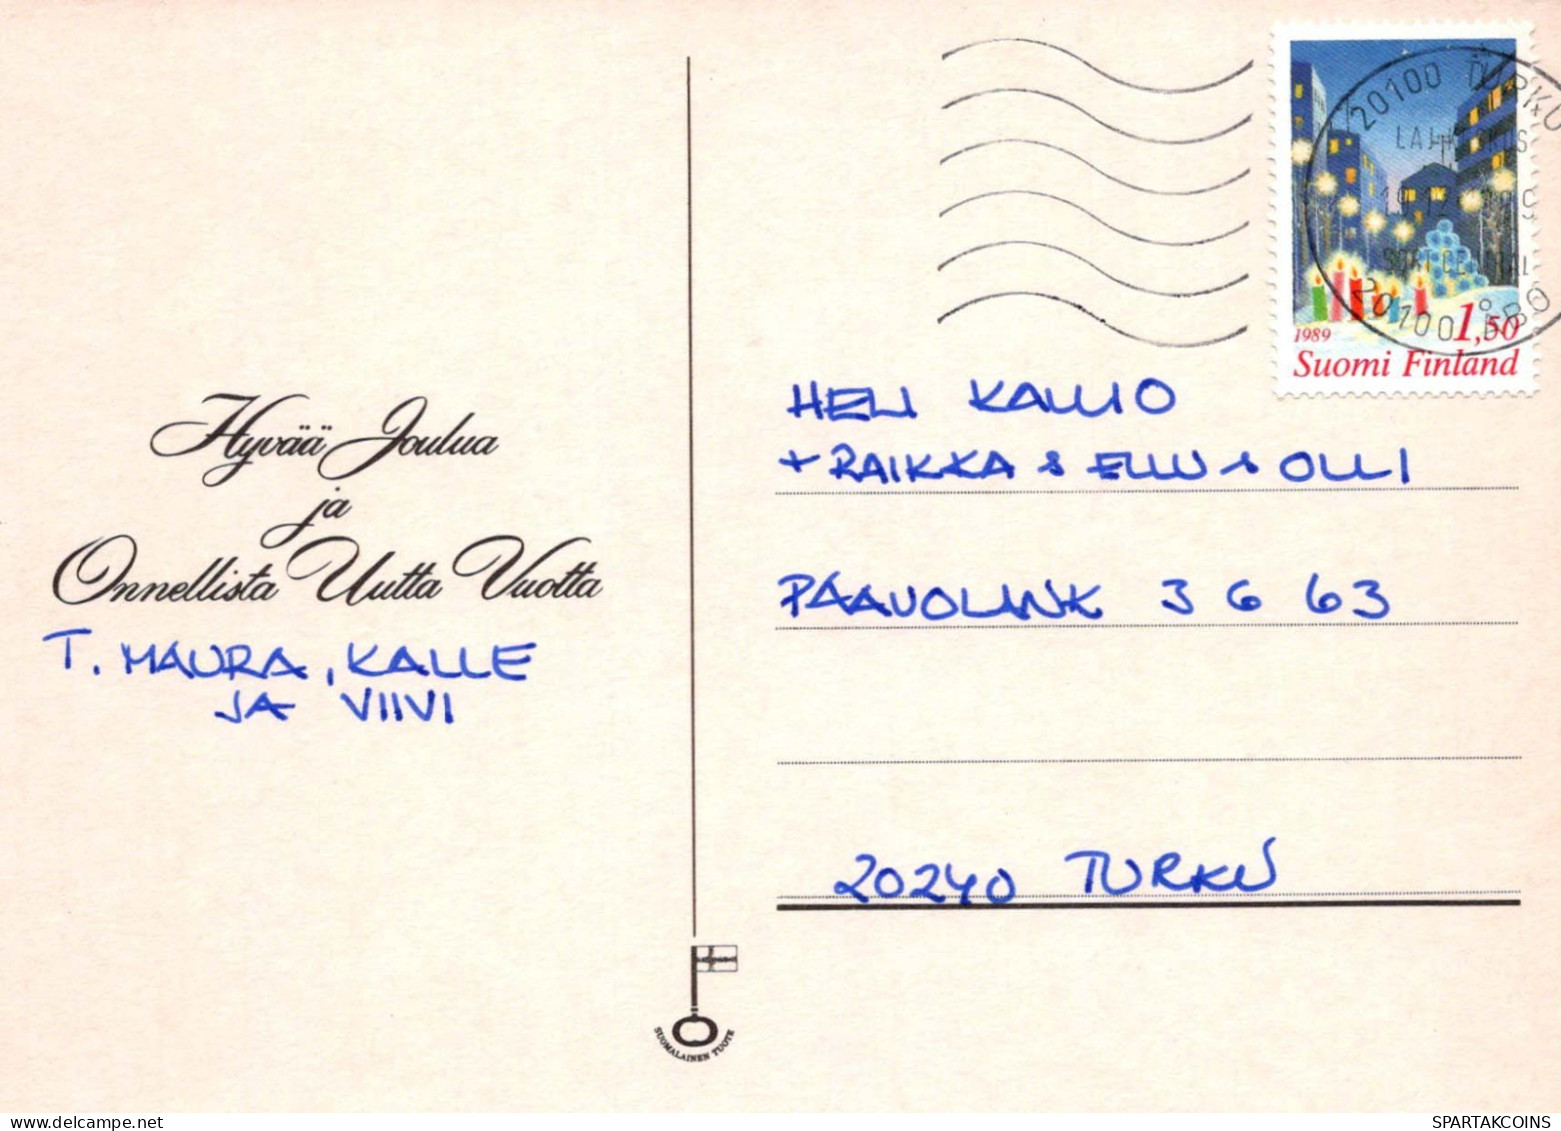 Hyvää Joulua
ja
Onnellista Uutta Vuotta
T. MAURA, KALLE
JA VIIVI
20100 TURKU
20100 ÅBO
1989
1,50
Suomi Finland
HELI KALLIO
+ RAIKKA & ELLU & OLLI
PAAVOLANK 3 G 63
20240 TURKU
SUOMALAINEN TUOTE
www.delcampe.net
SPARTAKCOINS